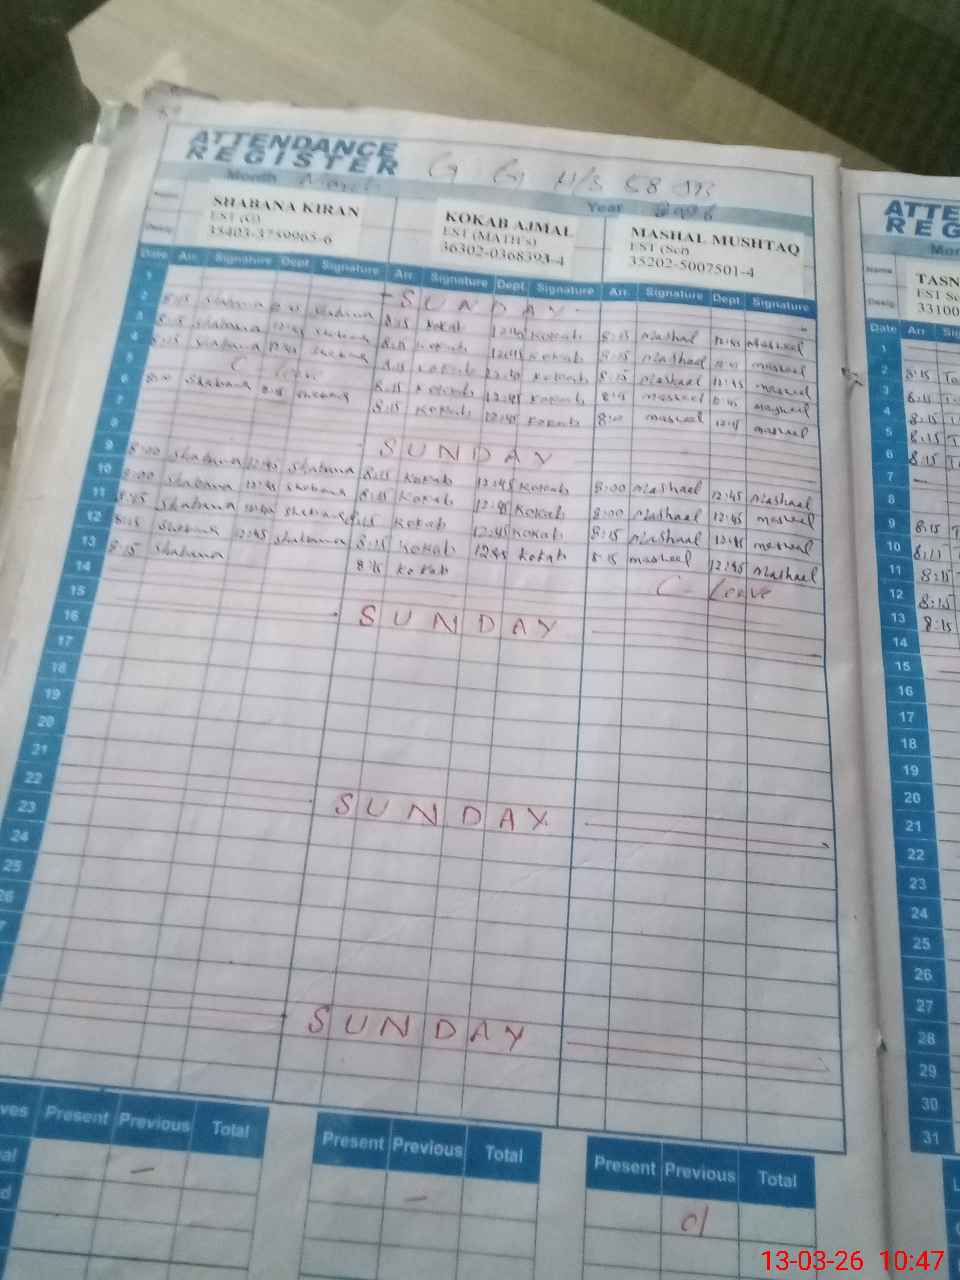 ATTENDANCE REGISTER G G H/S 58
Month March Year
SHABANA KIRAN
EST (G)
35403-3759965-6
KOKAB AJMAL
EST (MATH's)
36302-0368393-4
MASHAL MUSHTAQ
EST (Sci)
35202-5007501-4
Date Arr. Signature Dept Signature Arr. Signature Dept. Signature Arr. Signature Dept. Signature
1 SUNDAY
2 8:15 Shabana Shabana 8:15 Kokab 12:45 Kokab 8:15 Mashael 12:45 Mashael
3 8:15 Shabana 12:45 Shabana 8:15 Kokab 12:45 Kokab 8:15 Mashael Mashael
4 8:15 Shabana 12:45 Shabana 8:15 Kokab 12:45 Kokab 8:15 Mashael 12:45 Mashael
5 C Leave 8:15 Kokab 12:45 Kokab Mashael Mashael
6 8:00 Shabana Shabana 8:15 Kokab 12:45 Kokab 8:00 Mashael 12:45 Mashael
7
8 SUNDAY
9 8:00 Shabana 12:45 Shabana 8:15 Kokab 12:45 Kokab 8:00 Mashael 12:45 Mashael
10 8:00 Shabana 12:45 Shabana 8:15 Kokab 12:45 Kokab 8:00 Mashael 12:45 Mashael
11 Shabana Shabana 8:15 Kokab 12:45 Kokab 8:15 Mashael 12:45 Mashael
12 8:15 Shabana 12:45 Shabana 8:15 Kokab 12:45 Kokab 8:15 Mashael 12:45 Mashael
13 8:15 Shabana 8:15 Kokab C- Leave
14
15 SUNDAY
16
17
18
19
20
21
22 SUNDAY
23
24
25
26
SUNDAY
Present Previous Total Present Previous Total Present Previous Total
– – 01
Name
Desig
TASN
EST Sc
33100
Date Arr
1
2 8:15
3 8:15
4 8:15
5 8:15
6 8:15
7
8
9 8:15
10
11 8:15
12 8:15
13 8:15
14
15
16
17
18
19
20
21
22
23
24
25
26
27
28
29
30
31
13-03-26 10:47